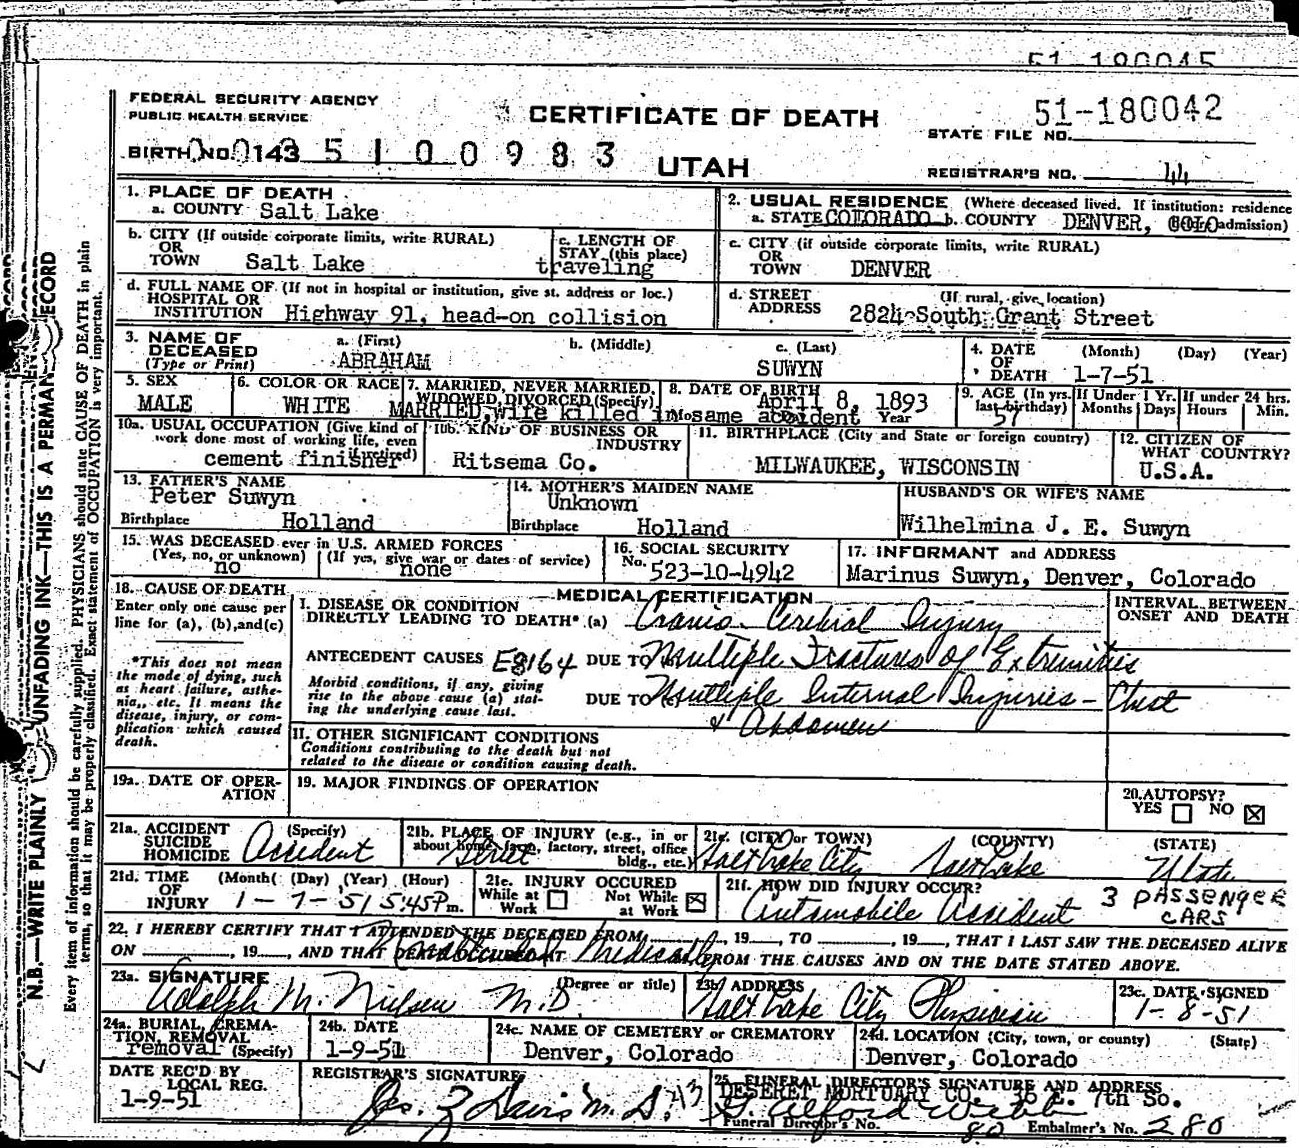 51-180045
FEDERAL SECURITY AGENCY
PUBLIC HEALTH SERVICE
CERTIFICATE OF DEATH
51-180042
STATE FILE NO.
BIRTH NO. 143 5 1 0 0 9 8 3
UTAH
REGISTRAR'S NO. 44
1. PLACE OF DEATH
a. COUNTY Salt Lake
2. USUAL RESIDENCE (Where deceased lived. If institution: residence
a. STATE COLORADO b. COUNTY DENVER, COLO admission)
b. CITY (If outside corporate limits, write RURAL)
OR
TOWN Salt Lake
c. LENGTH OF
STAY (this place)
traveling
c. CITY (if outside corporate limits, write RURAL)
OR
TOWN DENVER
d. FULL NAME OF (If not in hospital or institution, give st. address or loc.)
HOSPITAL OR
INSTITUTION Highway 91, head-on collision
d. STREET
ADDRESS
(If rural, give location)
2824 South Grant Street
3. NAME OF
DECEASED
(Type or Print)
a. (First)
ABRAHAM
b. (Middle)
c. (Last)
SUWYN
4. DATE
OF
DEATH
(Month) (Day) (Year)
1-7-51
5. SEX
MALE
6. COLOR OR RACE
WHITE
7. MARRIED, NEVER MARRIED,
WIDOWED, DIVORCED (Specify)
MARRIED, wife killed in same accident
8. DATE OF BIRTH
April 8, 1893
Year
9. AGE (In yrs.
last birthday)
57
If Under 1 Yr.
Months Days
If under 24 hrs.
Hours Min.
10a. USUAL OCCUPATION (Give kind of
work done most of working life, even
if retired)
cement finisher
10b. KIND OF BUSINESS OR
INDUSTRY
Ritsema Co.
11. BIRTHPLACE (City and State or foreign country)
MILWAUKEE, WISCONSIN
12. CITIZEN OF
WHAT COUNTRY?
U.S.A.
13. FATHER'S NAME
Peter Suwyn
Birthplace Holland
14. MOTHER'S MAIDEN NAME
Unknown
Birthplace Holland
HUSBAND'S OR WIFE'S NAME
Wilhelmina J. E. Suwyn
15. WAS DECEASED ever in U.S. ARMED FORCES
(Yes, no, or unknown) (If yes, give war or dates of service)
no none
16. SOCIAL SECURITY
No. 523-10-4942
17. INFORMANT and ADDRESS
Marinus Suwyn, Denver, Colorado
18. CAUSE OF DEATH
Enter only one cause per
line for (a), (b), and (c)
*This does not mean
the mode of dying, such
as heart failure, asthe-
nia, etc. It means the
disease, injury, or com-
plication which caused
death.
MEDICAL CERTIFICATION
I. DISEASE OR CONDITION
DIRECTLY LEADING TO DEATH* (a) Cranio-Cerebral Injury
ANTECEDENT CAUSES E8164 DUE TO Multiple Fractures of Extremities
Morbid conditions, if any, giving
rise to the above cause (a) stat-
ing the underlying cause last.
DUE TO Multiple Internal Injuries - Chest
& Abdomen
INTERVAL BETWEEN
ONSET AND DEATH
II. OTHER SIGNIFICANT CONDITIONS
Conditions contributing to the death but not
related to the disease or condition causing death.
19a. DATE OF OPER-
ATION
19. MAJOR FINDINGS OF OPERATION
20. AUTOPSY?
YES NO
21a. ACCIDENT
SUICIDE
HOMICIDE
(Specify)
Accident
21b. PLACE OF INJURY (e.g., in or
about home, farm, factory, street, office
bldg., etc.)
Street
21c. (CITY or TOWN) (COUNTY) (STATE)
Salt Lake City Salt Lake Utah
21d. TIME
OF
INJURY
(Month) (Day) (Year) (Hour)
1-7-51 5:45P m.
21e. INJURY OCCURED
While at
Work
Not While
at Work
21f. HOW DID INJURY OCCUR?
Automobile Accident 3 PASSENGER
CARS
22. I HEREBY CERTIFY THAT I ATTENDED THE DECEASED FROM , 19 , TO , 19 , THAT I LAST SAW THE DECEASED ALIVE
ON , 19 , AND THAT DEATH OCCURRED AT Medically FROM THE CAUSES AND ON THE DATE STATED ABOVE.
23a. SIGNATURE (Degree or title)
Adolph M. Nielsen M.D.
23b. ADDRESS
Salt Lake City Physician
23c. DATE SIGNED
1-8-51
24a. BURIAL, CREMA-
TION, REMOVAL
removal (Specify)
24b. DATE
1-9-51
24c. NAME OF CEMETERY or CREMATORY
Denver, Colorado
24d. LOCATION (City, town, or county) (State)
Denver, Colorado
DATE REC'D BY
LOCAL REG.
1-9-51
REGISTRAR'S SIGNATURE
Jas. Z. Davis M.D.
25. FUNERAL DIRECTOR'S SIGNATURE AND ADDRESS
DESERET MORTUARY CO. 36 E. 7th So.
G. Alford Webb
Funeral Director's No. 80 Embalmer's No. 280
N.B.—WRITE PLAINLY UNFADING INK—THIS IS A PERMAN RECORD
Every item of information should be carefully supplied. PHYSICIANS should state CAUSE OF DEATH in plain
terms, so that it may be properly classified. Exact statement of OCCUPATION is very important.